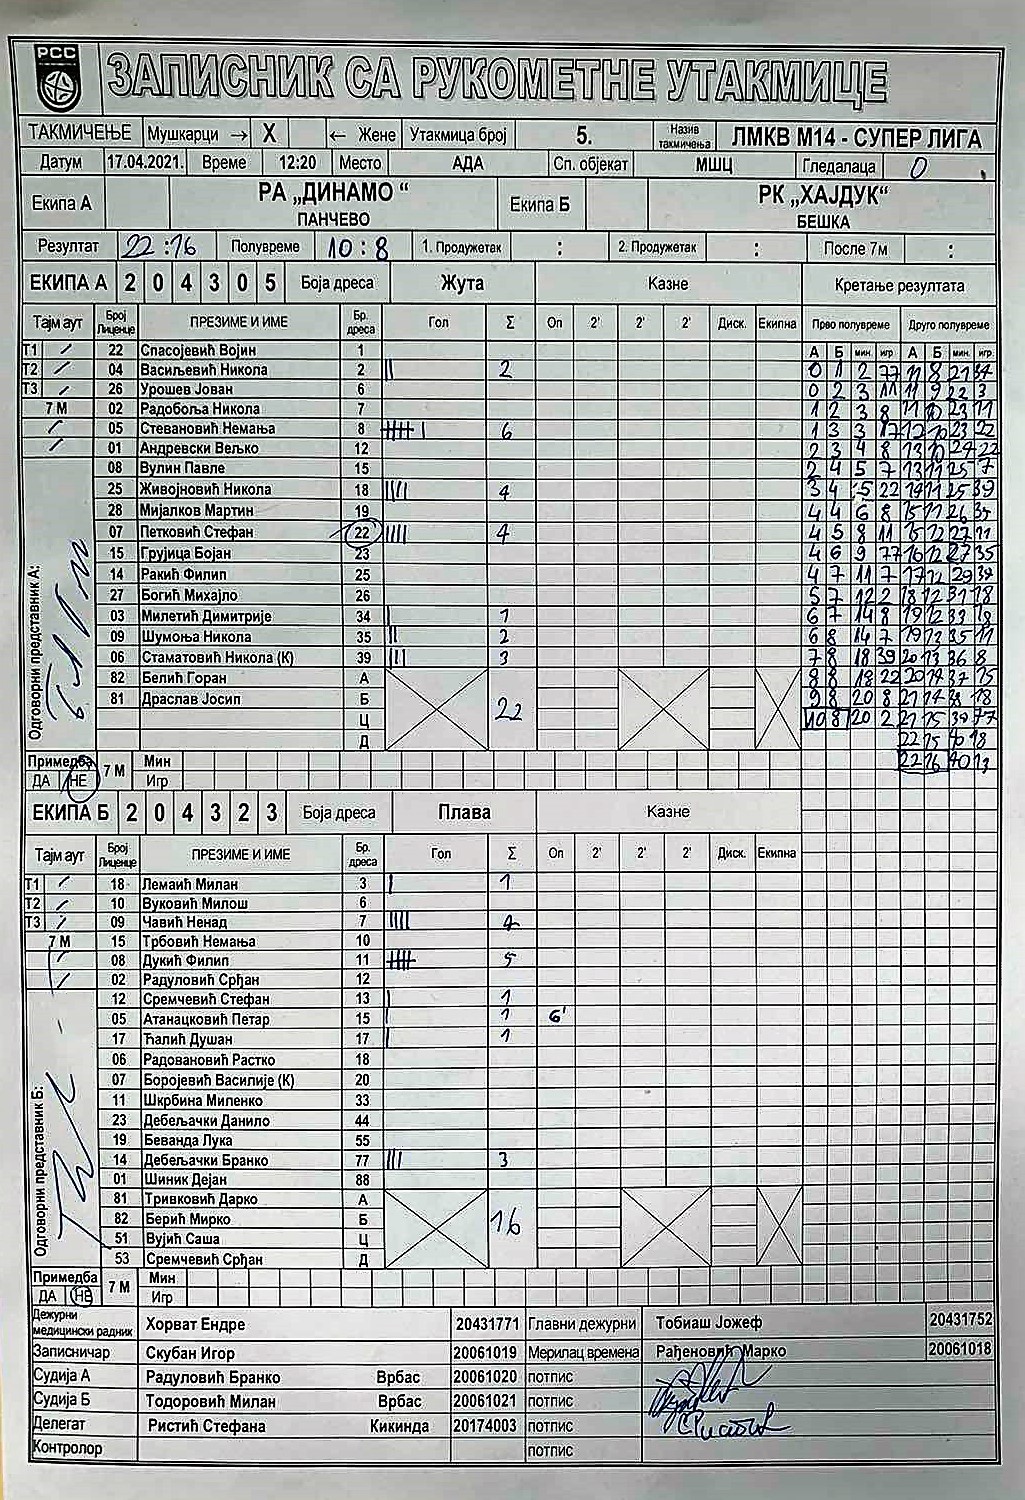 РСС
ЗАПИСНИК СА РУКОМЕТНЕ УТАКМИЦЕ
ТАКМИЧЕЊЕ Мушкарци → X ← Жене Утакмица број 5. Назив такмичења ЛМКВ М14 - СУПЕР ЛИГА
Датум 17.04.2021. Време 12:20 Место АДА Сп. објекат МШЦ Гледалаца 0
Екипа А РА „ДИНАМО “ ПАНЧЕВО Екипа Б РК „ХАЈДУК“ БЕШКА
Резултат 22:16 Полувреме 10:8 1. Продужетак : 2. Продужетак : После 7м :
ЕКИПА А 2 0 4 3 0 5 Боја дреса Жута Казне Кретање резултата
Тајм аут Број Лиценце ПРЕЗИМЕ И ИМЕ Бр. дреса Гол Σ Оп 2' 2' 2' Диск. Екипна Прво полувреме Друго полувреме
А Б мин. игр А Б мин. игр.
Т1 / 22 Спасојевић Војин 1
Т2 / 04 Васиљевић Никола 2 || 2
Т3 / 26 Урошев Јован 6
7 М 02 Радобоља Никола 7
/ 05 Стевановић Немања 8 6
/ 01 Андревски Вељко 12
08 Вулин Павле 15
25 Живојновић Никола 18 |||| 4
28 Мијалков Мартин 19
07 Петковић Стефан 22 |||| 4
15 Грујица Бојан 23
14 Ракић Филип 25
27 Богић Михајло 26
03 Милетић Димитрије 34 | 1
09 Шумоња Никола 35 || 2
06 Стаматовић Никола (К) 39 ||| 3
82 Белић Горан А
81 Драслав Јосип Б 22
Ц
Д
Одговорни представник А:
0 1 2 77 11 8 21 34
0 2 3 11 11 9 22 3
1 2 3 8 11 10 23 11
1 3 3 17 12 10 23 22
2 3 4 8 13 10 24 22
2 4 5 7 13 11 25 7
3 4 5 22 14 11 25 39
4 4 6 8 15 11 26 35
4 5 8 11 15 12 27 11
4 6 9 77 16 12 27 35
4 7 11 7 17 12 29 39
5 7 12 2 18 12 31 18
6 7 14 8 19 12 33 18
6 8 14 7 19 13 35 11
7 8 18 39 20 13 36 8
8 8 18 22 20 14 37 15
9 8 20 8 21 14 38 18
10 8 20 2 21 15 39 77
22 15 40 18
22 16 40 13
Примедба ДА НЕ 7 М Мин Игр
ЕКИПА Б 2 0 4 3 2 3 Боја дреса Плава Казне
Тајм аут Број Лиценце ПРЕЗИМЕ И ИМЕ Бр. дреса Гол Σ Оп 2' 2' 2' Диск. Екипна
Т1 / 18 Лемаић Милан 3 | 1
Т2 / 10 Вуковић Милош 6
Т3 / 09 Чавић Ненад 7 |||| 4
7 М 15 Трбовић Немања 10
/ 08 Дукић Филип 11 5
/ 02 Радуловић Срђан 12
12 Сремчевић Стефан 13 | 1
05 Атанацковић Петар 15 | 1 6'
17 Ћалић Душан 17 | 1
06 Радовановић Растко 18
07 Боројевић Василије (К) 20
11 Шкрбина Миленко 33
23 Дебељачки Данило 44
19 Беванда Лука 55
14 Дебељачки Бранко 77 ||| 3
01 Шиник Дејан 88
81 Тривковић Дарко А
82 Берић Мирко Б 16
51 Вујић Саша Ц
53 Сремчевић Срђан Д
Одговорни представник Б:
Примедба ДА НЕ 7 М Мин Игр.
Дежурни медицински радник Хорват Ендре 20431771 Главни дежурни Тобиаш Јожеф 20431752
Записничар Скубан Игор 20061019 Мерилац времена Рађеновић Марко 20061018
Судија А Радуловић Бранко Врбас 20061020 потпис
Судија Б Тодоровић Милан Врбас 20061021 потпис
Делегат Ристић Стефана Кикинда 20174003 потпис
Контролор потпис